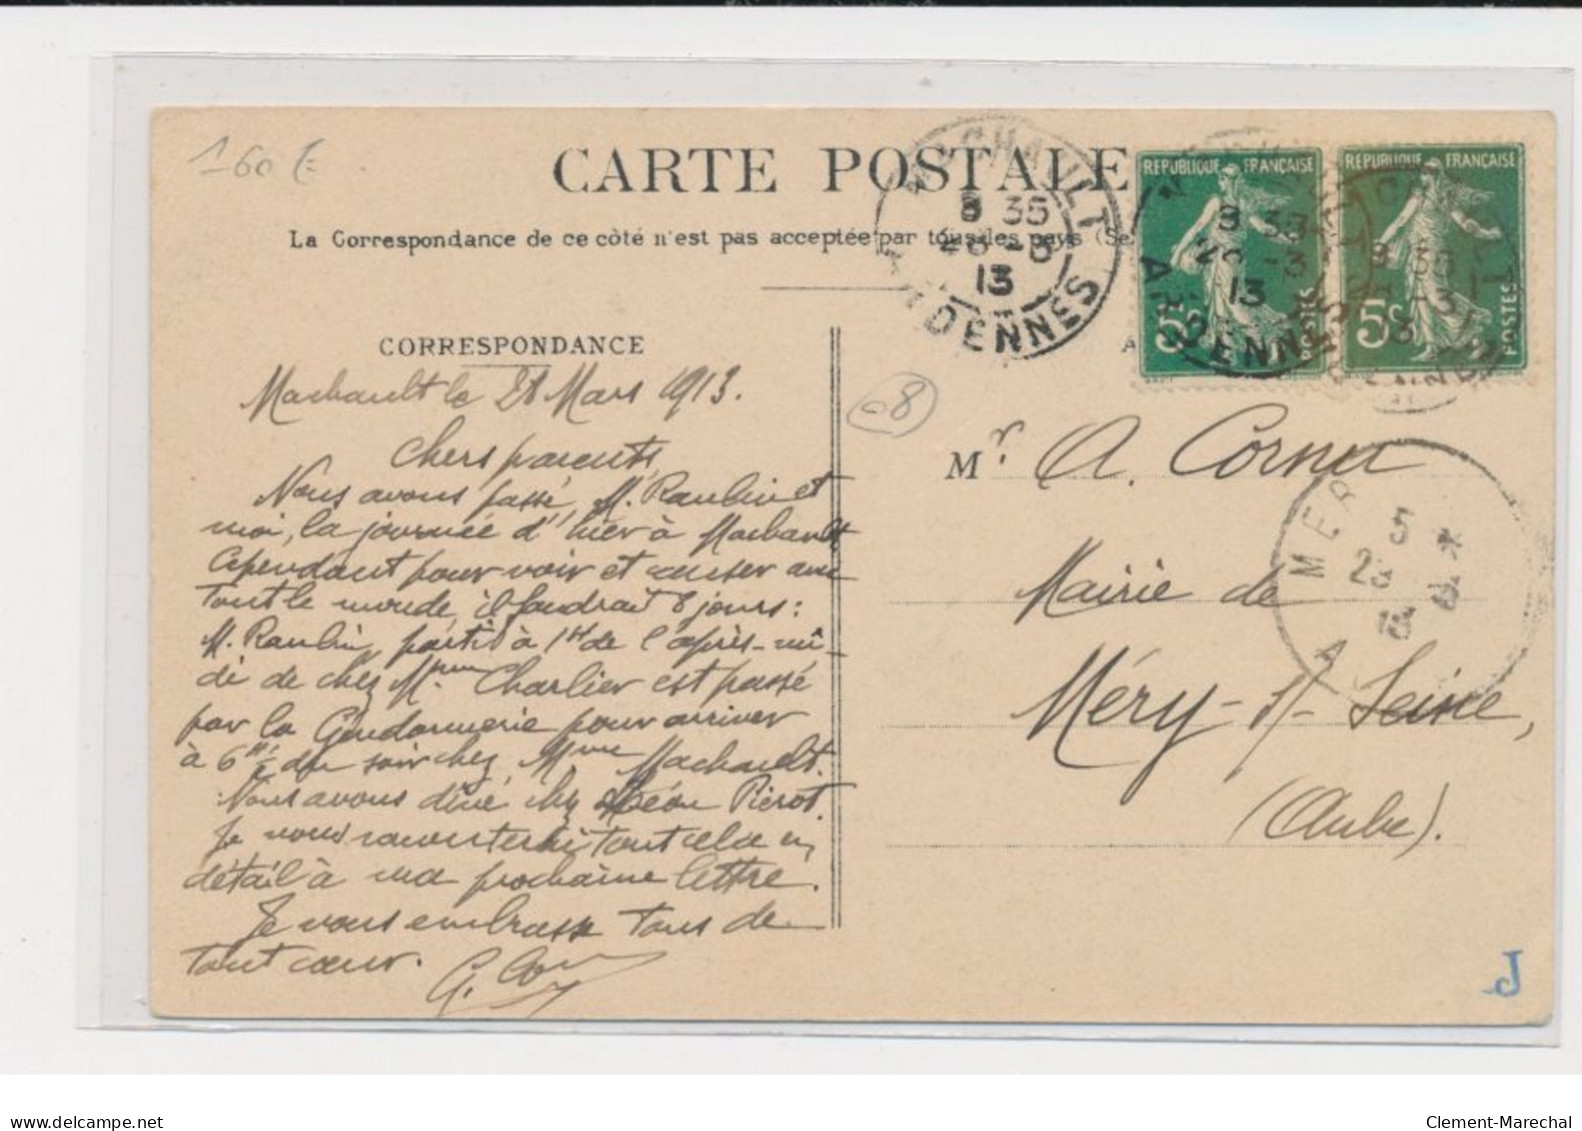 160 €
CARTE POSTALE
La Correspondance de ce côté n'est pas acceptée par tous les pays (Se
MACHAULT
8 35
28 -3
13
ARDENNES
REPUBLIQUE FRANÇAISE
5c
POSTES
REPUBLIQUE FRANÇAISE
5c
POSTES
CORRESPONDANCE
Machault le 28 Mars 1913.
Chers parents,
Nous avons passé, M. Raulin et
moi, la journée d'hier à Machault,
Cependant pour voir et causer avec
tout le monde, il faudrait 8 jours:
M. Raulin, partit à 1h de l'après-mi-
di de chez Mme Charlier est passé
par la Gendarmerie pour arriver
à 6h ½ du soir chez Mme Machault.
Nous avons dîné chez Léon Pierot.
Je vous raconterai tout cela en
détail à ma prochaine lettre.
Je vous embrasse tous de
tout cœur.
08
A
Mr. A. Cornu
Mairie de
Méry-s/-Seine,
(Aube).
MER
J
delcampe.net
Clement-Marechal